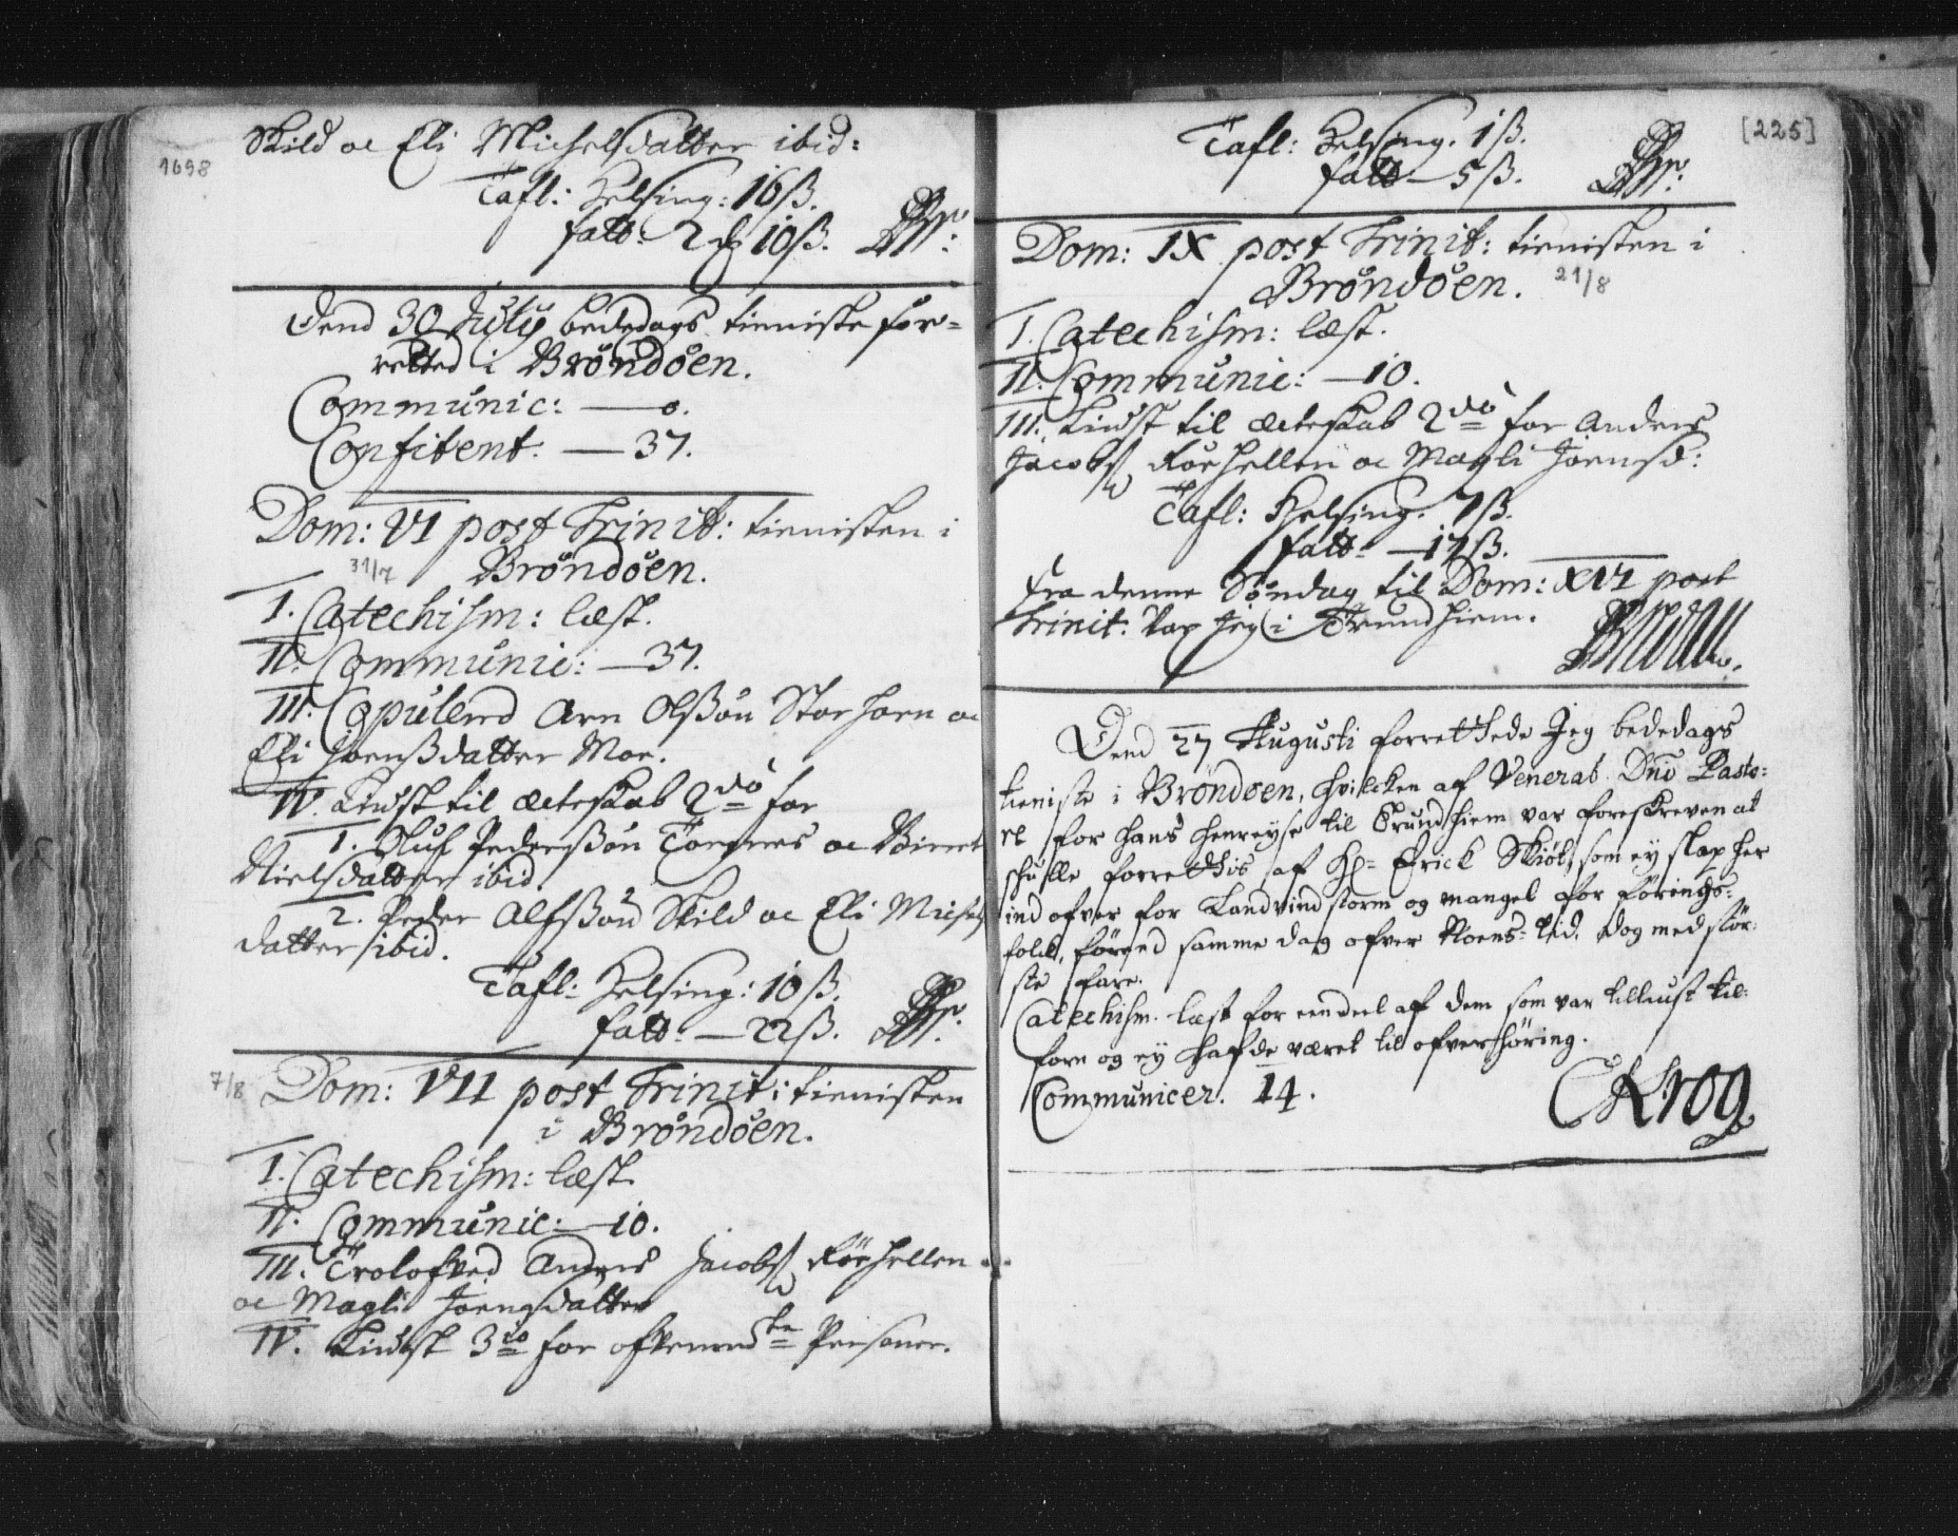 1698
Skild oc Eli Michelsdatter ibid:
Tafl: Helsing: 16ß.
fatt: 2 10ß.
Dend 30 July bededags tieniste for=
retted i Brøndøen.
Communic: — 0.
Confitent. — 37.
Dom: VI post Trinit: tienisten i
31/7 Brøndøen.
I. Catechism: læst.
II. Communic: — 37.
III. Copulerd Arn Olßøn Storhorn oc
Eli Joenßdatter Moe.
IV. Liust til Ecteskab 2do for
1. Oluf Pederßøn Torgnes oc Birret
Nielsdatter ibid.
2. Peder Alfßøn Skild oc Eli Michels
datter ibid.
Tafl: Helsing: 10ß.
fatt: — 22ß.
7/8 Dom: VII post Trinit: tienisten
i Brøndøen.
I. Catechism: læst.
II. Communic: — 10.
III. Trolofved Anders Jacobs Rørhellen
oc Magli Joensdatter
IV. Liust 3io for ofvenmdte Personer.
[225]
Tafl: Helsing. 1ß.
fatt — 5ß.
Dom: IX post Trinit: tienisten i
Brøndøen. 21/8
I. Catechism: læst.
II. Communic: — 10.
III. Liust til Ecteskab 2do for Anders
Jacobs Rørhellen oc Magli Joensd:
Tafl: Helsing. 7ß.
fatt: — 17ß.
Fra denne Søndag til Dom: XVI post
Trinit: Var Jeg i Trundhiem.
Dend 27 Augusti forrettede Jeg bededags
tieniste i Brøndøen, hvilcken af Venerab. Dno Pasto=
re for hans henreyse til Trundhiem var foreskreven at
schulle forrettis af Hr. Erick Skiøl, som ey slap her
ind ofver for Landvind storm og mangel for førings=
folck, samme dag ofver Dog med stør=
ste fare.
Catechism. læst for eendeel af dem som var tilliust til=
forn og ey hafde været til ofverhøring.
Communicer. 14.
CKrog